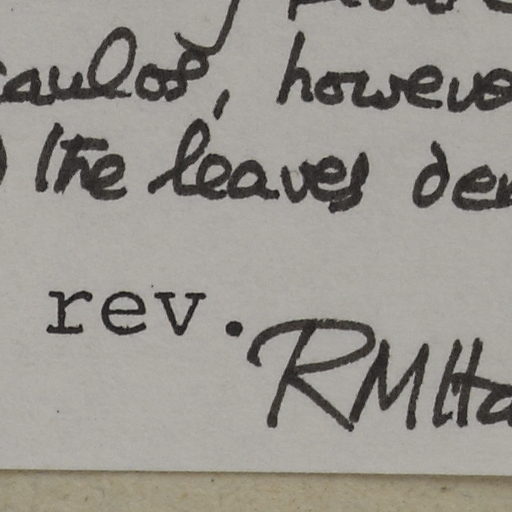 caulos, howeve
the leaves den
rev. RMHa